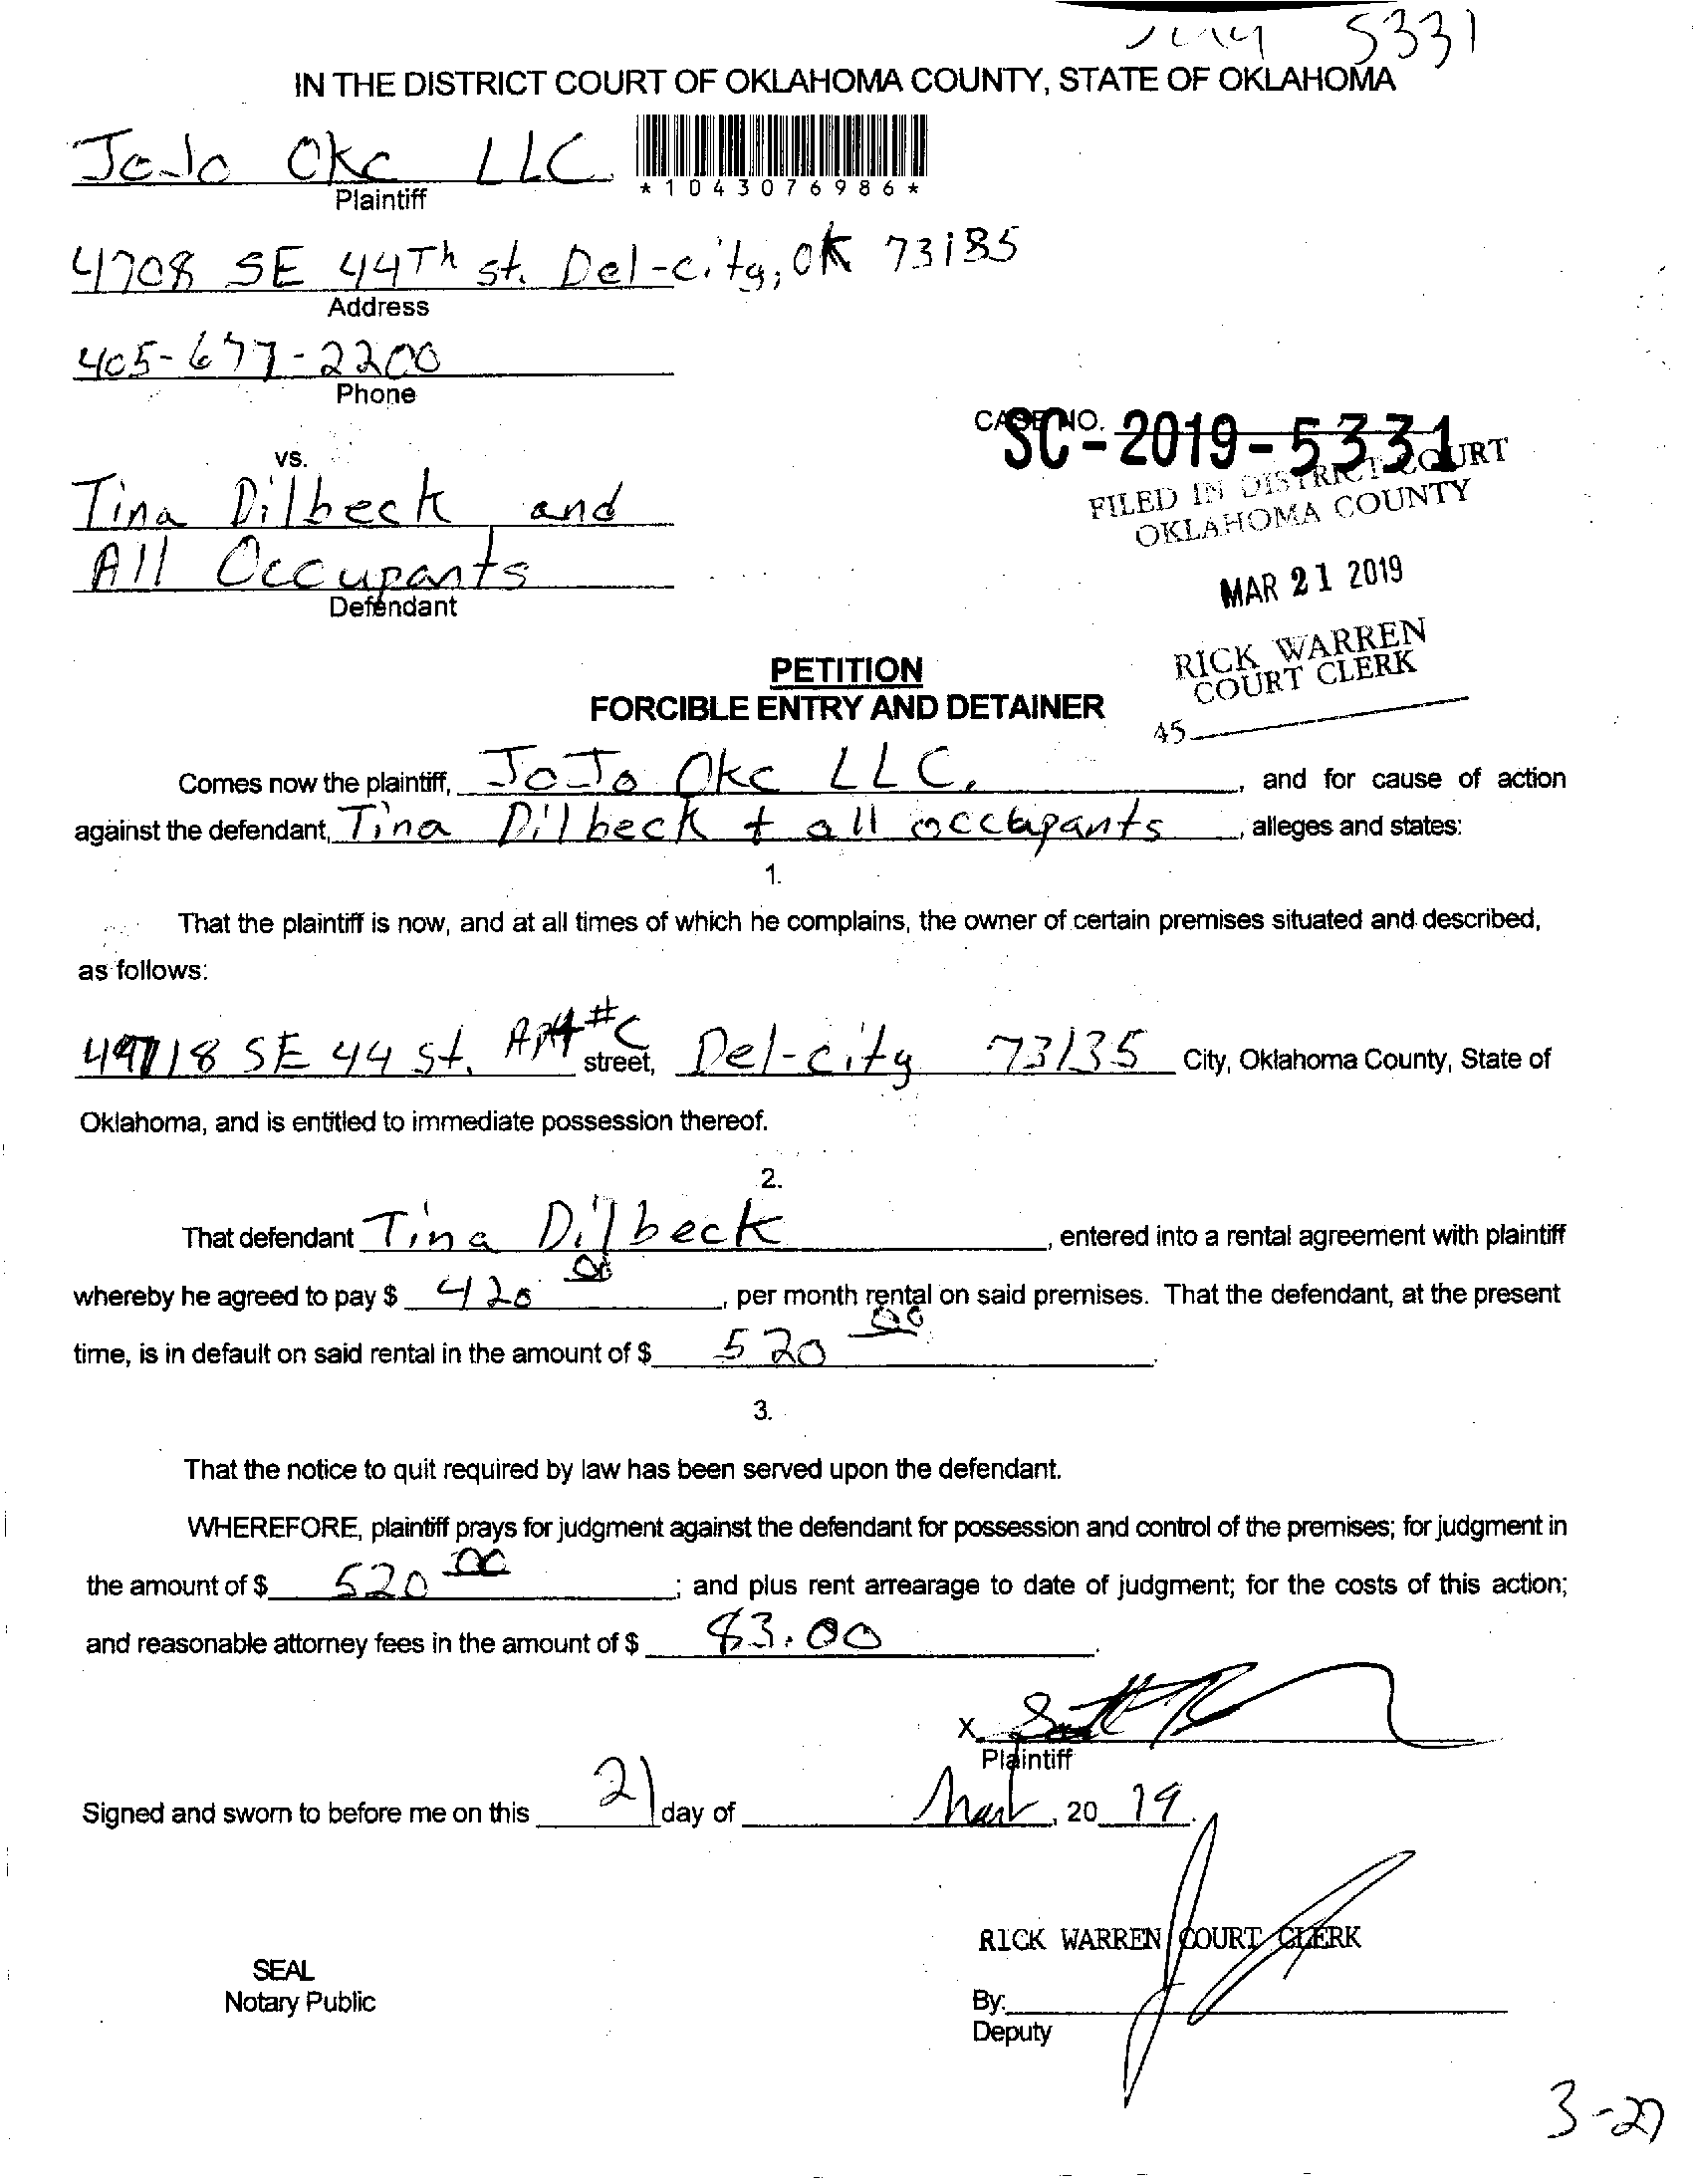 5331
IN THE DISTRICT COURT OF OKLAHOMA COUNTY, STATE OF OKLAHOMA
JoJo Okc LLC.
Plaintiff
*1043076986*
4708 SE 44Th st. Del-city, OK 73135
Address
405-677-2200
Phone
CASE NO. SC-2019-5331
vs.
FILED IN DISTRICT COURT
OKLAHOMA COUNTY
Tina Dilbeck and
All Occupants
Defendant
MAR 21 2019
RICK WARREN
COURT CLERK
45
PETITION
FORCIBLE ENTRY AND DETAINER
Comes now the plaintiff, JoJo Okc LLC. , and for cause of action
against the defendant, Tina Dilbeck + all occupants , alleges and states:
1.
That the plaintiff is now, and at all times of which he complains, the owner of certain premises situated and described,
as follows:
SE 44 st. Apt #C street, Del-city 73135 City, Oklahoma County, State of
Oklahoma, and is entitled to immediate possession thereof.
2.
That defendant Tina Dilbeck , entered into a rental agreement with plaintiff
whereby he agreed to pay $ 420 00 , per month rental on said premises. That the defendant, at the present
time, is in default on said rental in the amount of $ 520 00 .
3.
That the notice to quit required by law has been served upon the defendant.
WHEREFORE, plaintiff prays for judgment against the defendant for possession and control of the premises; for judgment in
the amount of $ 520 00 ; and plus rent arrearage to date of judgment; for the costs of this action;
and reasonable attorney fees in the amount of $ 83.00 .
X
Plaintiff
Signed and sworn to before me on this 21 day of March , 20 19 .
RICK WARREN COURT CLERK
SEAL
Notary Public
By:
Deputy
3-27